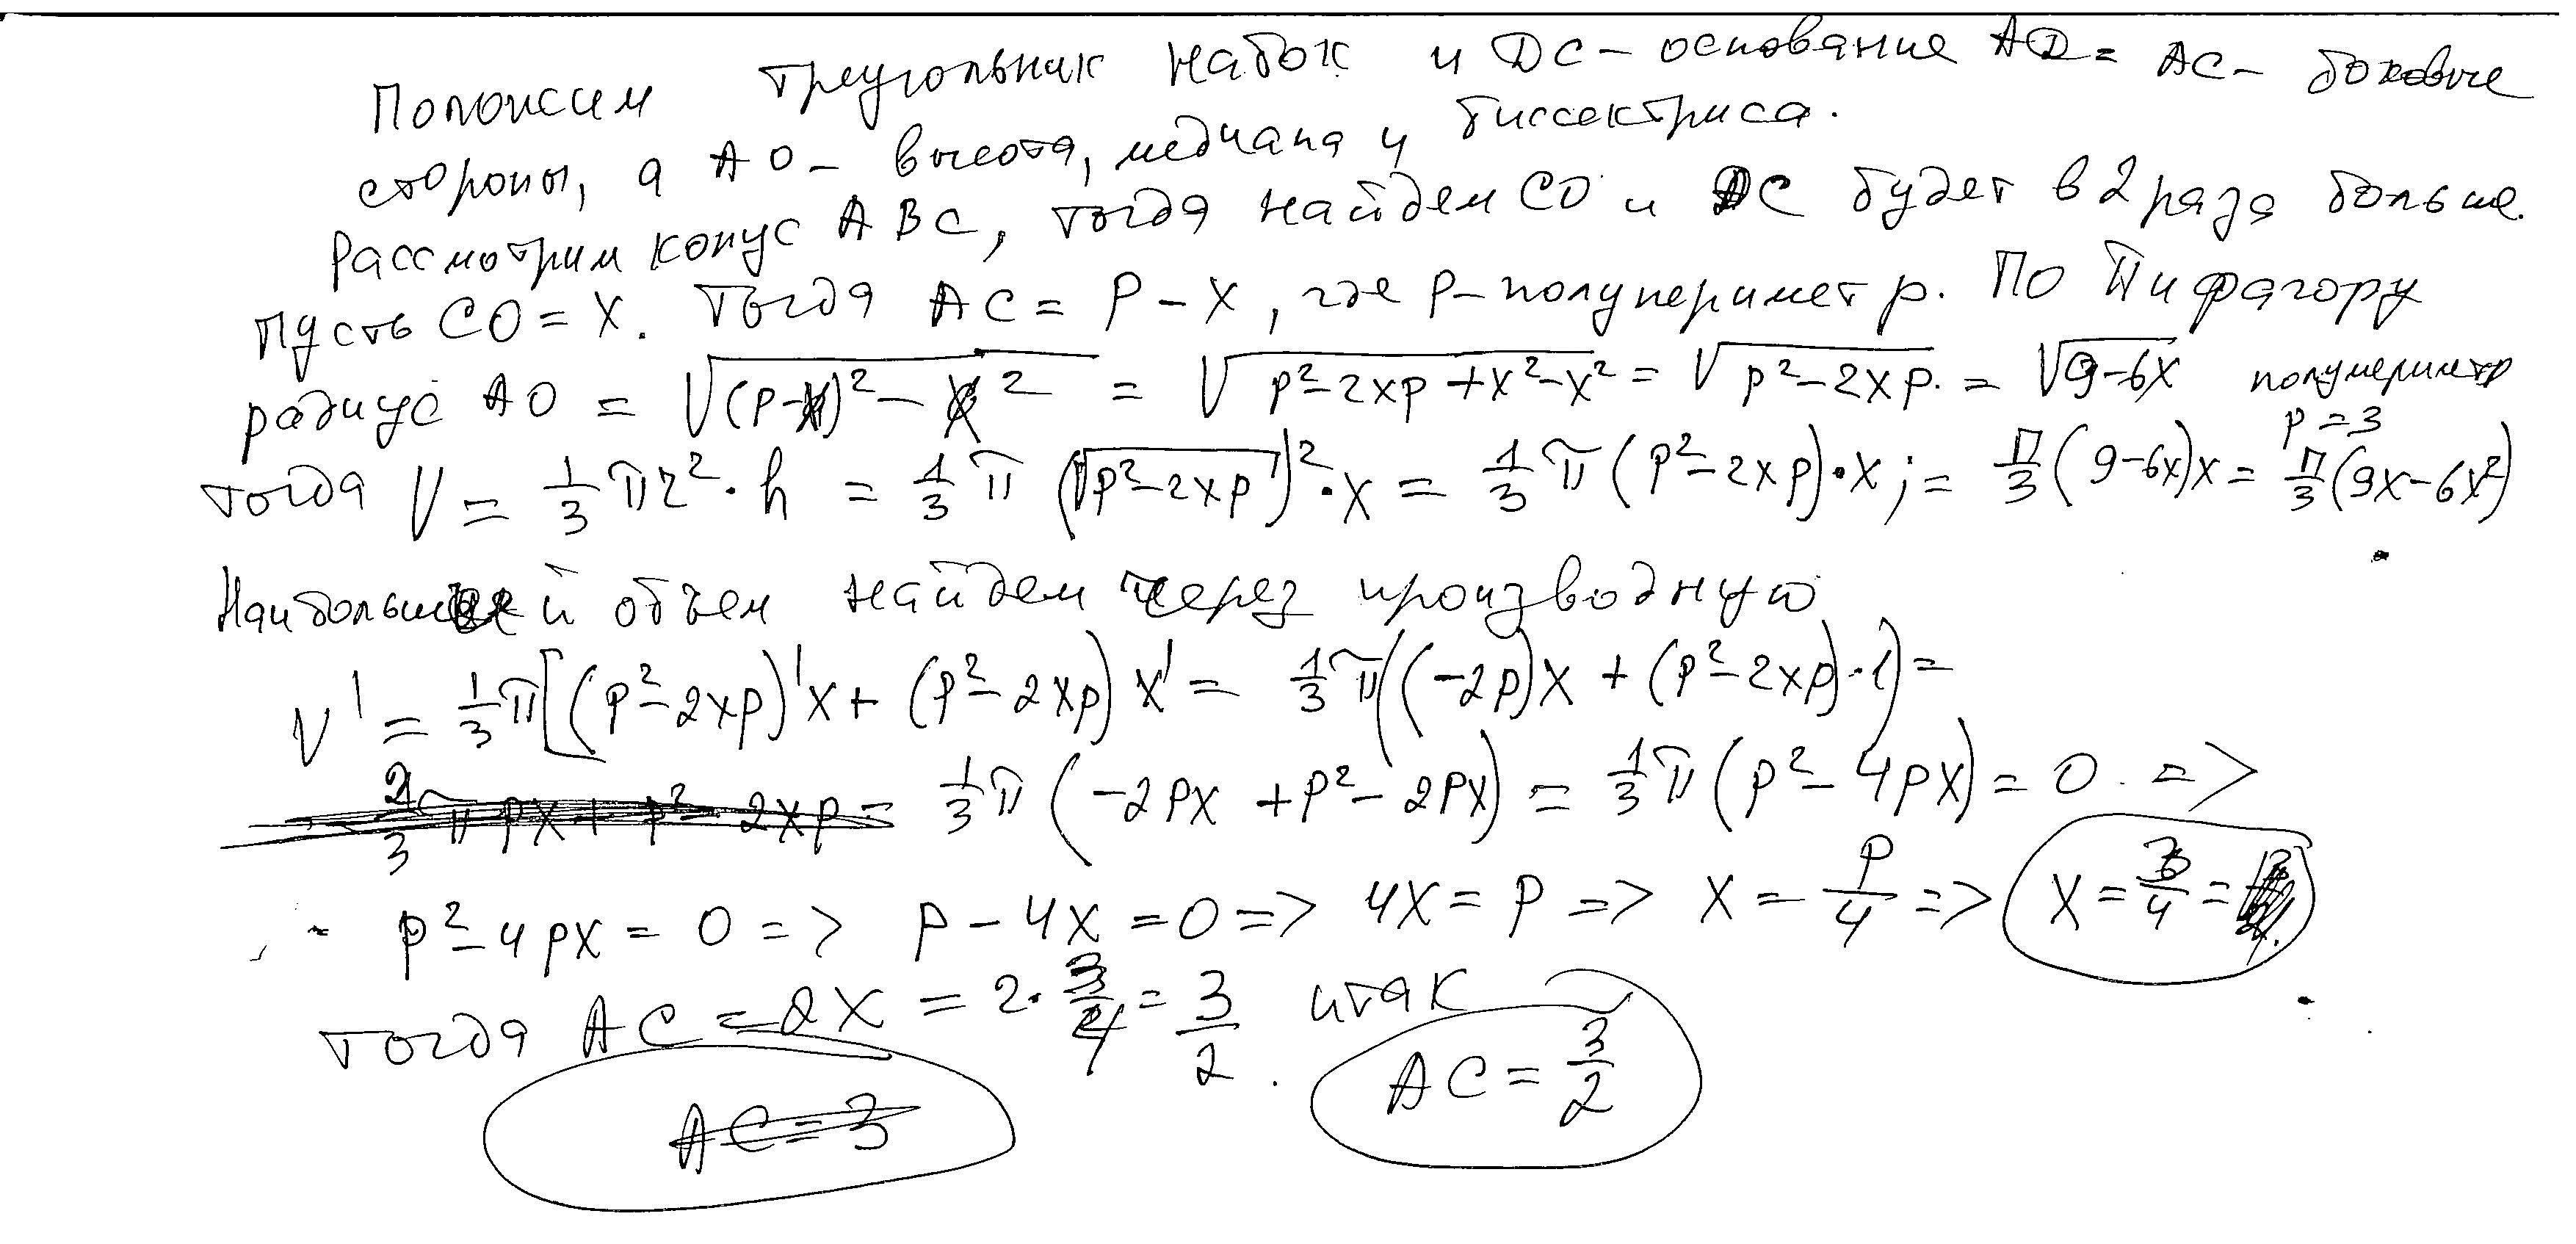 Положим треугольник набок и DC – основание AD = AC – боковые
стороны, а AO – высота, медиана и биссектриса.
Рассмотрим конус ABC, тогда найдем CO и DC будет в 2 раза больше.
Пусть CO = X. Тогда AC = P – X, где P – полупериметр. По Пифагору
радиус AO = √((P–X)² – X²) = √(P² – 2XP + X² – X²) = √(P² – 2XP) = √(9–6X) полупериметр P = 3
тогда V = 1/3 π r² · h = 1/3 π (√(P² – 2XP))² · X = 1/3 π (P² – 2XP) · X ; = π/3 (9–6X)X = π/3 (9X – 6X²)
Наибольший объем найдем через производную
V' = 1/3 π [(P² – 2XP)'X + (P² – 2XP) X' = 1/3 π((–2P)X + (P² – 2XP)·1) =
1/3 π (–2PX + P² – 2PX) = 1/3 π (P² – 4PX) = 0 =>
P² – 4PX = 0 => P – 4X = 0 => 4X = P => X = P/4 => X = 3/4 =
тогда AC = 2X = 2 · 3/4 = 3/2 . итак
AC = 3/2
AC = 3